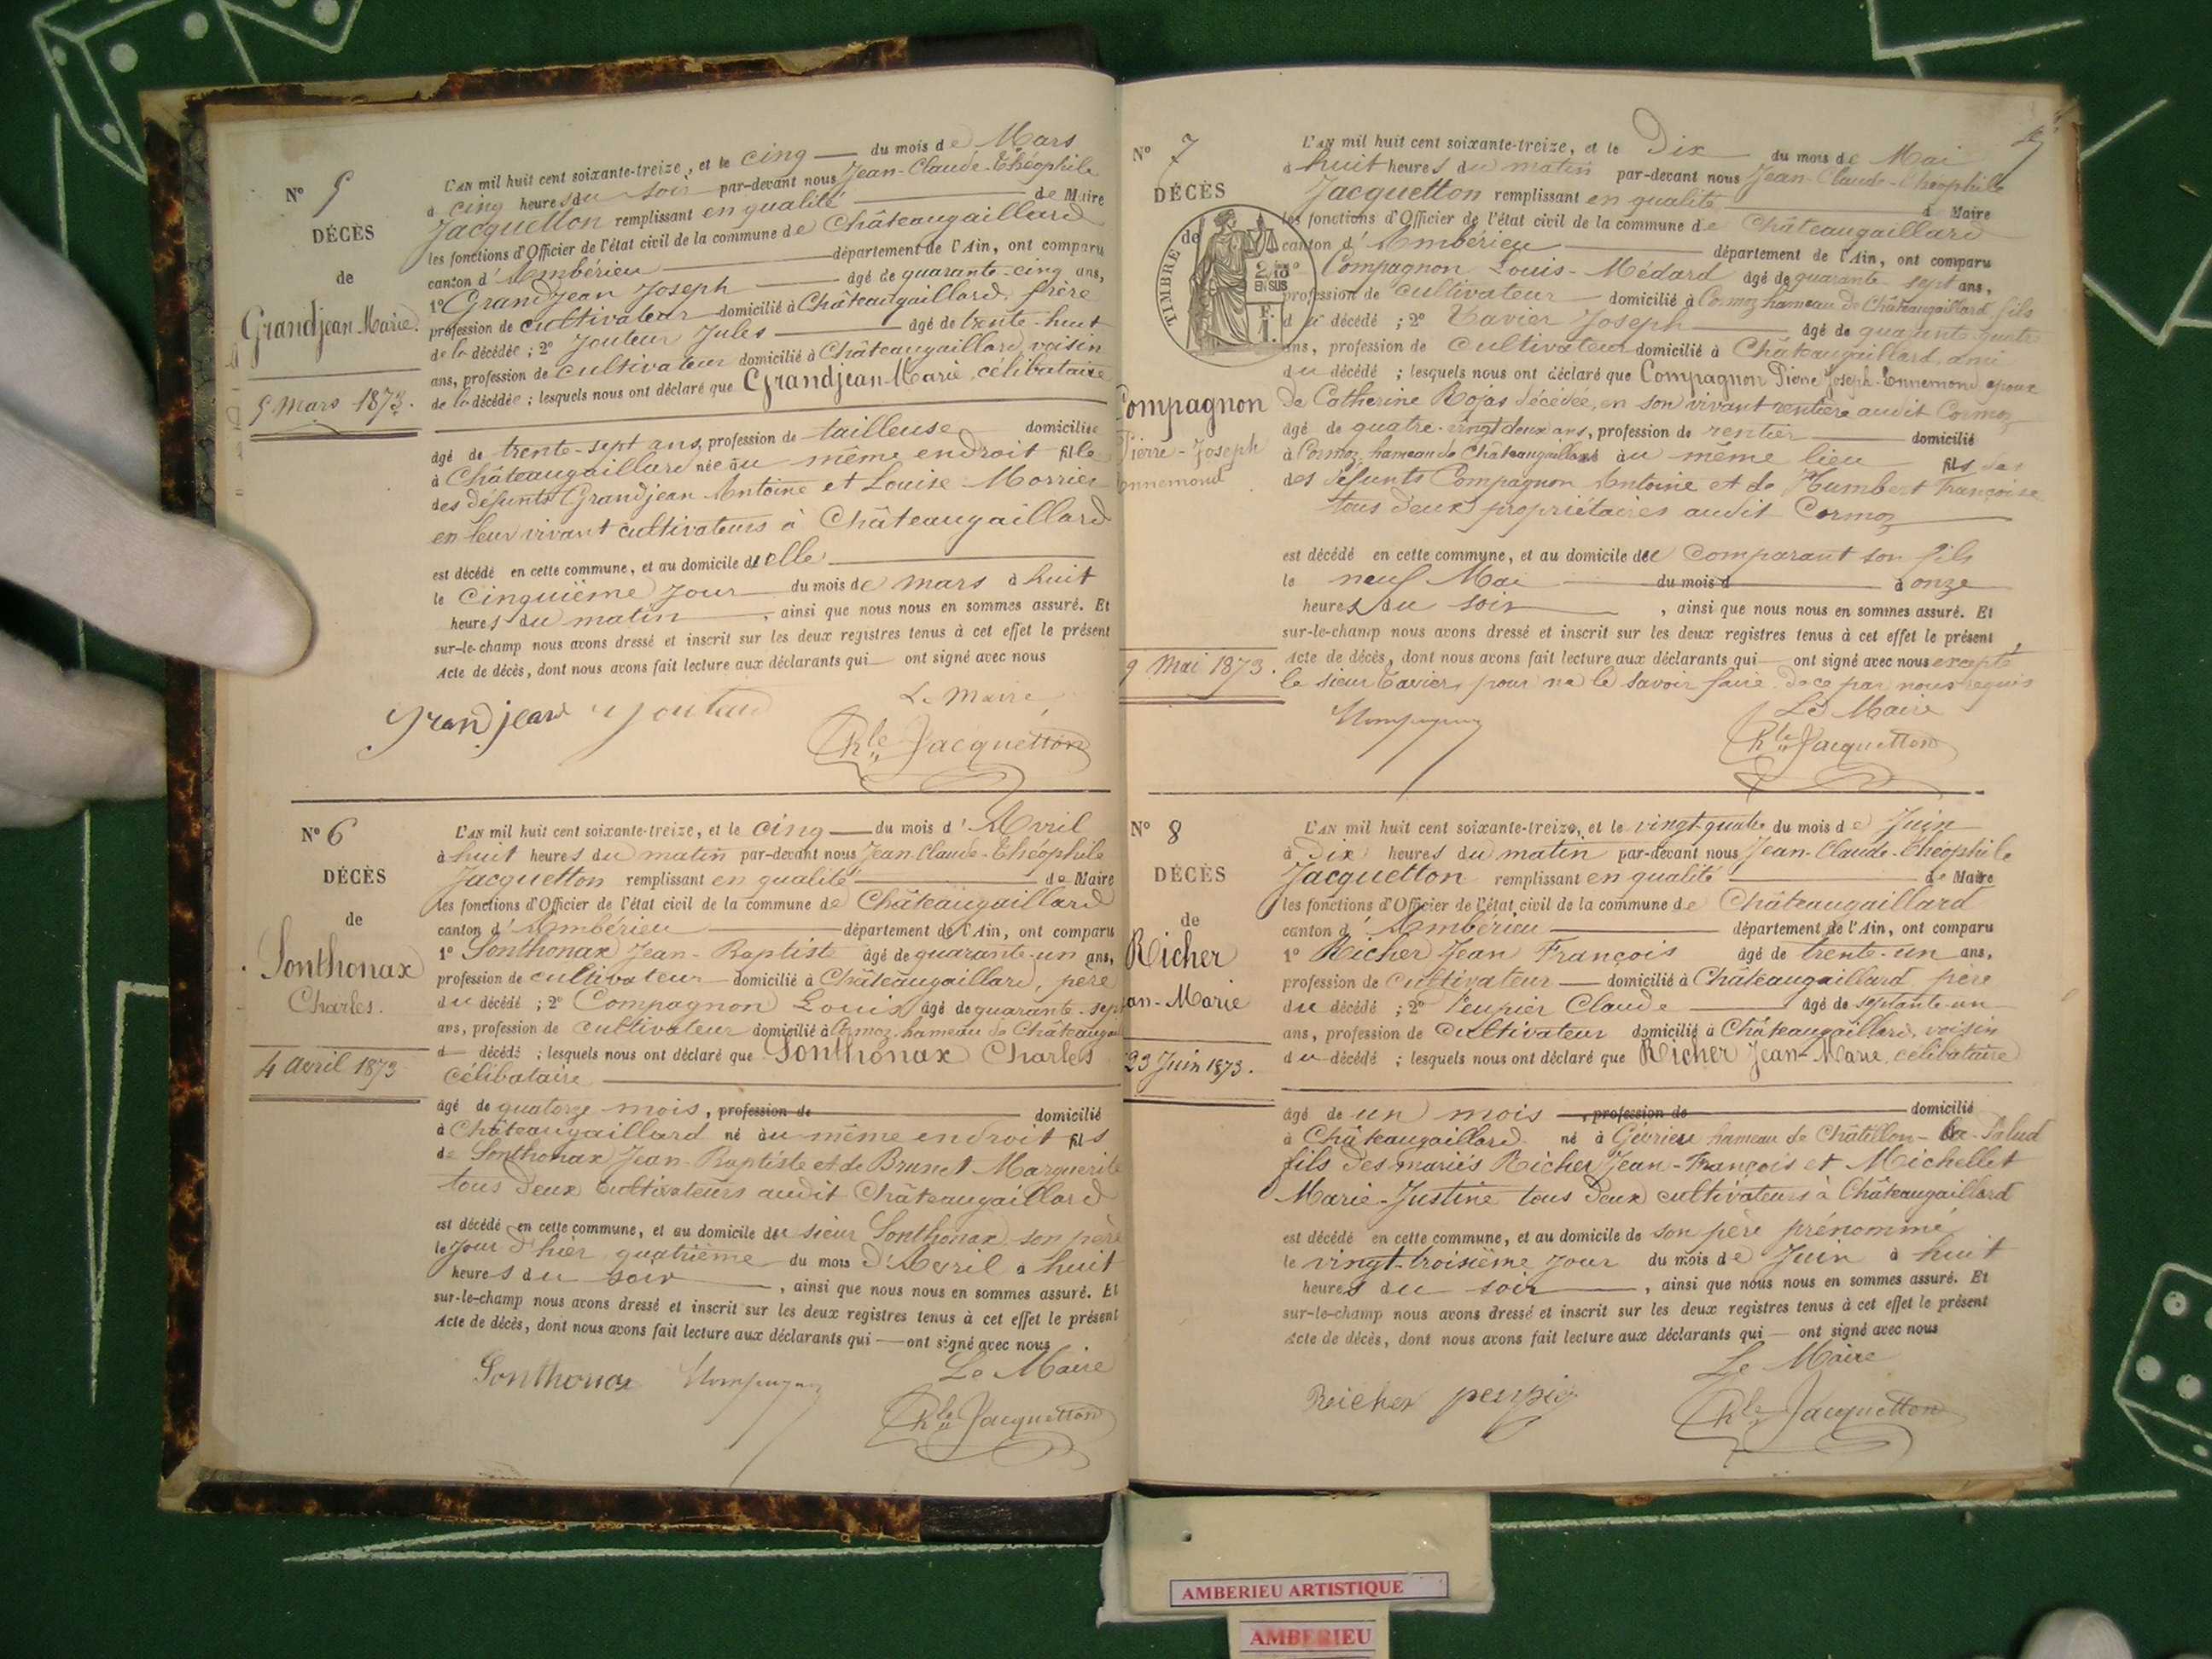 N° 5
DÉCÈS
de
Grandjean Marie.
5 Mars 1873.
L'AN mil huit cent soixante-treize, et le cinq du mois de Mars
à cinq heures du soir par-devant nous Jean-Claude-Théophile
Jacquetton remplissant en qualité de Maire
les fonctions d'Officier de l'état civil de la commune de Châteaugaillard
canton d'Ambérieu département de l'Ain, ont comparu
1° Grandjean Joseph âgé de quarante-cinq ans,
profession de cultivateur domicilié à Châteaugaillard, frère
de la décédée ; 2° Jouteur Jules âgé de trente-huit
ans, profession de cultivateur domicilié à Châteaugaillard, voisin
de la décédée ; lesquels nous ont déclaré que Grandjean Marie, célibataire
âgé de trente-sept ans, profession de tailleuse domiciliée
à Châteaugaillard née au même endroit fille
des défunts Grandjean Antoine et Louise Morrier
en leur vivant cultivateurs à Châteaugaillard
est décédé en cette commune, et au domicile d'elle
le cinquième jour du mois de mars à huit
heures du matin, ainsi que nous nous en sommes assuré. Et
sur-le-champ nous avons dressé et inscrit sur les deux registres tenus à cet effet le présent
Acte de décès, dont nous avons fait lecture aux déclarants qui ont signé avec nous
Le Maire,
Grandjean
Jacquetton
N° 6
DÉCÈS
de
Sonthonax
Charles.
4 Avril 1873
L'AN mil huit cent soixante-treize, et le cinq du mois d'Avril
à huit heures du matin par-devant nous Jean-Claude-Théophile
Jacquetton remplissant en qualité de Maire
les fonctions d'Officier de l'état civil de la commune de Châteaugaillard
canton d'Ambérieu département de l'Ain, ont comparu
1° Sonthonax Jean-Baptiste âgé de quarante-un ans,
profession de cultivateur domicilié à Châteaugaillard, père
du décédé ; 2° Compagnon Louis âgé de quarante-sept
ans, profession de cultivateur domicilié à Cormoz, hameau de Châteaugail
d décédé ; lesquels nous ont déclaré que Sonthonax Charles
célibataire
âgé de quatorze mois, profession de domicilié
à Châteaugaillard né au même endroit fils
de Sonthonax Jean-Baptiste et de Brunet Marguerite
tous deux cultivateurs audit Châteaugaillard
est décédé en cette commune, et au domicile du sieur Sonthonax son père
le jour d'hier quatrième du mois d'Avril à huit
heures du soir, ainsi que nous nous en sommes assuré. Et
sur-le-champ nous avons dressé et inscrit sur les deux registres tenus à cet effet le présent
Acte de décès, dont nous avons fait lecture aux déclarants qui ont signé avec nous
Le Maire
Sonthonax
Jacquetton
N° 7
DÉCÈS
de
TIMBRE
2/10es
EN SUS
Compagnon
Pierre-Joseph
Ennemond
9 Mai 1873.
L'AN mil huit cent soixante-treize, et le Dix du mois de Mai
à huit heures du matin par-devant nous Jean-Claude-Théophile
Jacquetton remplissant en qualité d Maire
les fonctions d'Officier de l'état civil de la commune de Châteaugaillard
canton d'Ambérieu département de l'Ain, ont comparu
1° Compagnon Louis-Médard âgé de quarante-sept ans,
profession de cultivateur domicilié à Cormoz hameau de Châteaugaillard, fils
du décédé ; 2° Tavier Joseph âgé de quarante-quatre
ans, profession de cultivateur domicilié à Châteaugaillard, ami
du décédé ; lesquels nous ont déclaré que Compagnon Pierre Joseph-Ennemond époux
de Catherine Rojas décédée, en son vivant rentière audit Cormoz
âgé de quatre-vingt-deux ans, profession de rentier domicilié
à Cormoz, hameau de Châteaugaillard né au même lieu fils des
des défunts Compagnon Antoine et de Humbert Françoise
tous deux propriétaires audit Cormoz
est décédé en cette commune, et au domicile del comparant son fils
le neuf Mai du mois d à onze
heures du soir, ainsi que nous nous en sommes assuré. Et
sur-le-champ nous avons dressé et inscrit sur les deux registres tenus à cet effet le présent
Acte de décès, dont nous avons fait lecture aux déclarants qui ont signé avec nous excepté
le sieur Tavier, pour ne le savoir faire de ce par nous requis
Le Maire
Jacquetton
N° 8
DÉCÈS
de
Richer
an-Marie
23 Juin 1873.
L'AN mil huit cent soixante-treize, et le vingt-quatre du mois de Juin
à Dix heures du matin par-devant nous Jean-Claude-Théophile
Jacquetton remplissant en qualité de Maire
les fonctions d'Officier de l'état civil de la commune de Châteaugaillard
canton d'Ambérieu département de l'Ain, ont comparu
1° Richer Jean François âgé de trente-un ans,
profession de cultivateur domicilié à Châteaugaillard père
du décédé ; 2° Peupier Claude âgé de septante-un
ans, profession de cultivateur domicilié à Châteaugaillard, voisin
du décédé ; lesquels nous ont déclaré que Richer Jean-Marie, célibataire
âgé de un mois, profession de domicilié
à Châteaugaillard né à Gévrieu hameau de Châtillon-la-Palud
fils des mariés Richer Jean-François et Michellet
Marie-Justine tous deux cultivateurs à Châteaugaillard
est décédé en cette commune, et au domicile de son père prénommé
le vingt-troisième jour du mois de Juin à huit
heures du soir, ainsi que nous nous en sommes assuré. Et
sur-le-champ nous avons dressé et inscrit sur les deux registres tenus à cet effet le présent
Acte de décès, dont nous avons fait lecture aux déclarants qui ont signé avec nous
Le Maire
Richer
Jacquetton
AMBERIEU ARTISTIQUE
AMBERIEU